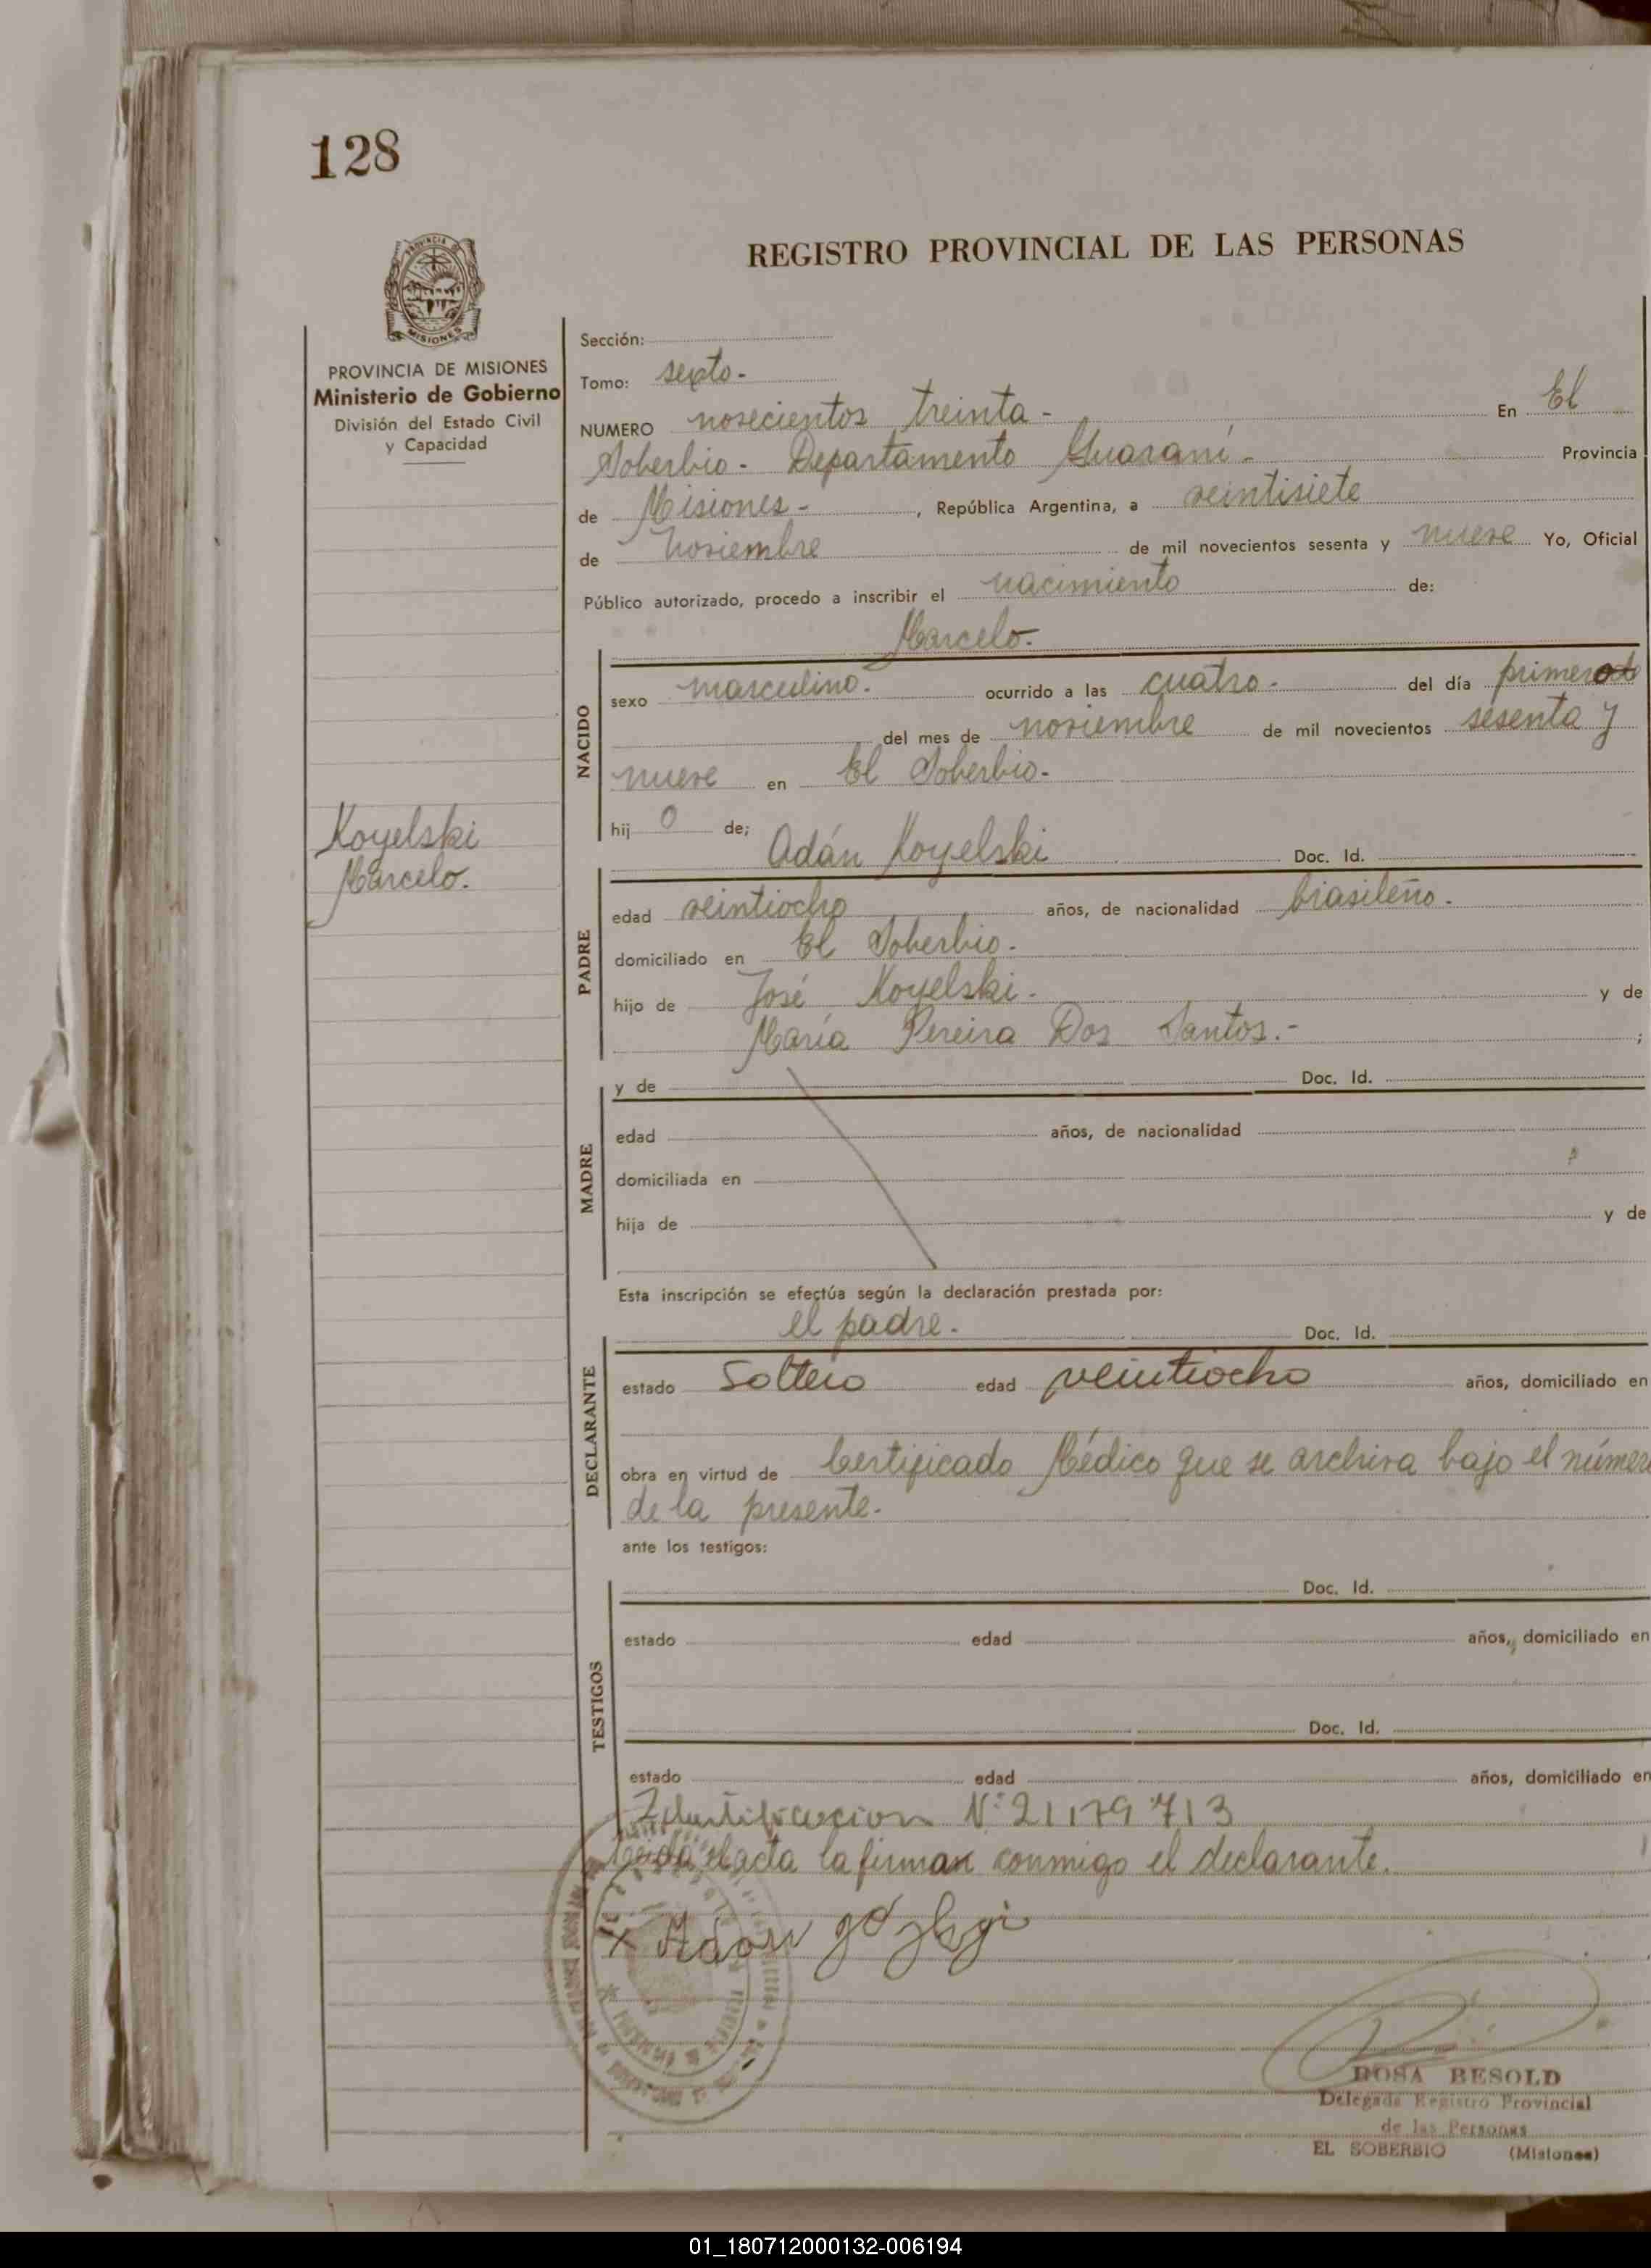 128
REGISTRO PROVINCIAL DE LAS PERSONAS
PROVINCIA DE MISIONES
Ministerio de Gobierno
División del Estado Civil
y Capacidad
Sección:
Tomo: sexto.-
NUMERO novecientos treinta - En El
Soberbio - Departamento Guaraní - Provincia
de Misiones - , República Argentina, a veintisiete
de noviembre de mil novecientos sesenta y nueve Yo, Oficial
Público autorizado, procedo a inscribir el nacimiento de:
Marcelo.-
NACIDO
sexo masculino.- ocurrido a las cuatro.- del día primero
del mes de noviembre de mil novecientos sesenta y
nueve en El Soberbio.-
hijo de;
Koyelski
Marcelo.
PADRE
Adán Koyelski Doc. Id.
edad veintiocho años, de nacionalidad brasileño.
domiciliado en El Soberbio.-
hijo de José Koyelski.- y de
María Pereira Dos Santos.- ;
MADRE
y de Doc. Id.
edad años, de nacionalidad
domiciliada en
hija de y de
Esta inscripción se efectúa según la declaración prestada por:
DECLARANTE
el padre.- Doc. Id.
estado soltero edad veintiocho años, domiciliado en
obra en virtud de Certificado Médico que se archiva bajo el número
de la presente.-
ante los testigos:
TESTIGOS
Doc. Id.
estado edad años, domiciliado en
Doc. Id.
estado edad años, domiciliado en
Identificacion Nº 21179713
Leída el acta la firman conmigo el declarante.
ROSA BESOLD
Delegada Registro Provincial
de las Personas
EL SOBERBIO (Misiones)
01_180712000132-006194